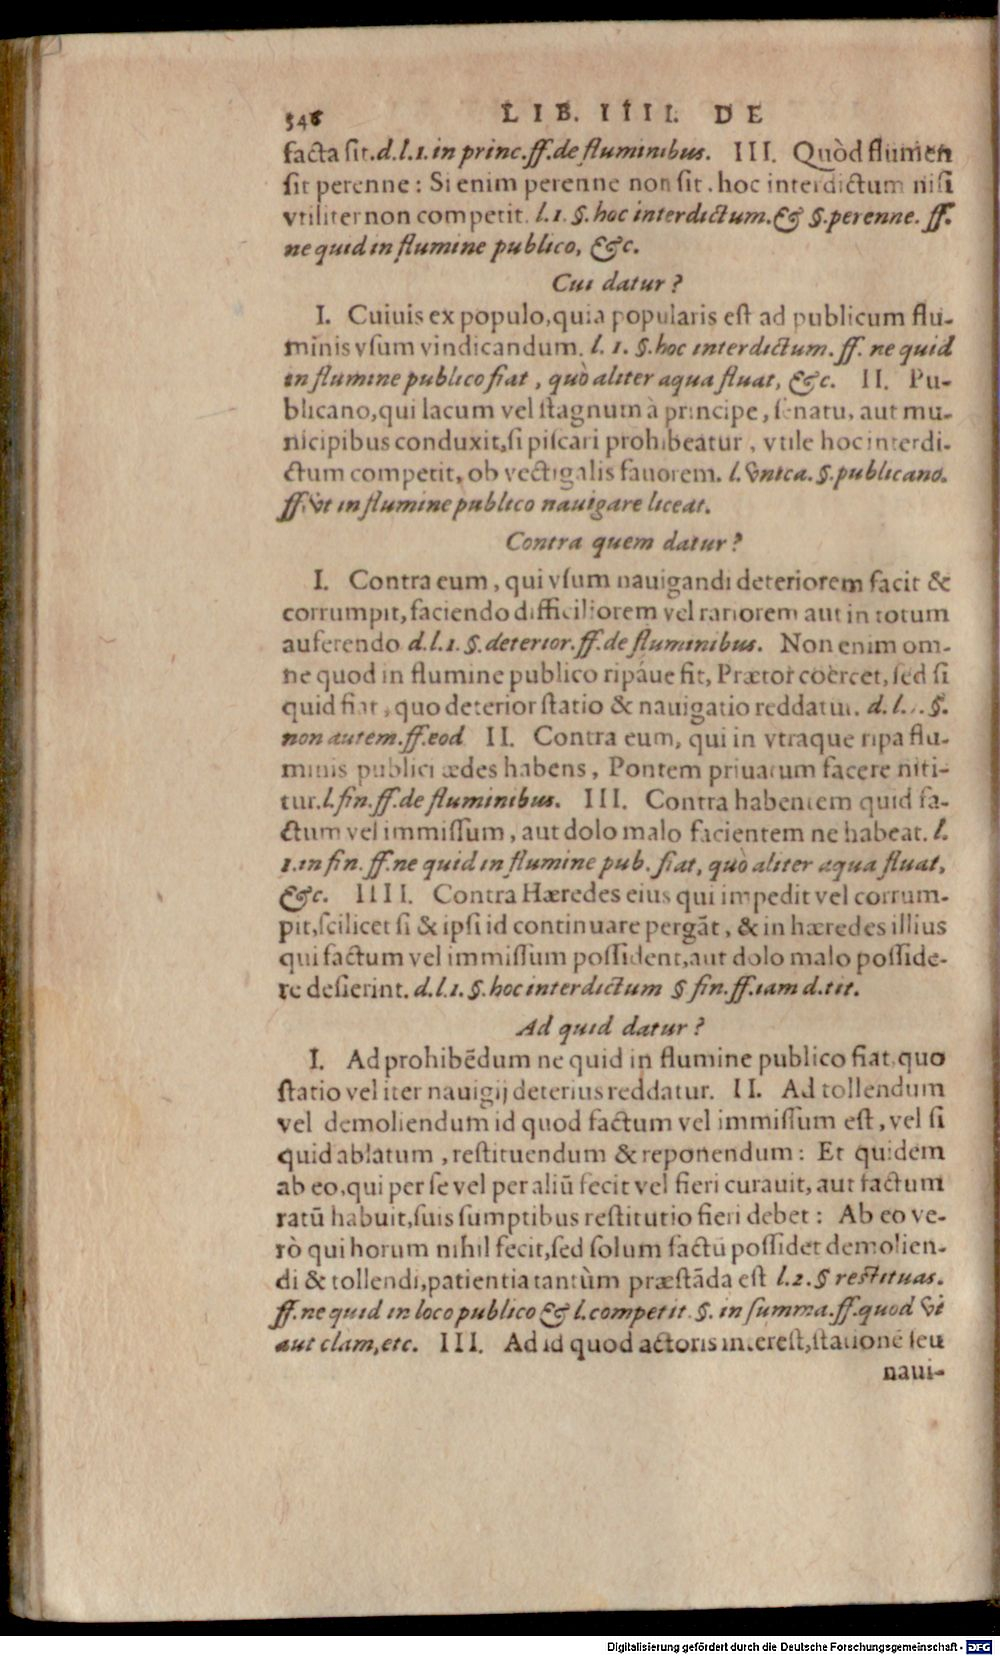 546 LIB. IIII. DE
facta sit. d.l.1. in princ. ff. de fluminibus. III. Quòd flumen
sit perenne: Si enim perenne non sit. hoc interdictum nisi
vtiliter non competit. l.1. §. hoc interdictum. & §. perenne. ff.
ne quid in flumine publico, &c.
Cui datur?
I. Cuiuis ex populo, quia popularis est ad publicum flu-
minis vsum vindicandum. l. 1. §. hoc interdictum. ff. ne quid
in flumine publico fiat, quò aliter aqua fluat, &c. II. Pu-
blicano, qui lacum vel stagnum à principe, senatu, aut mu-
nicipibus conduxit, si piscari prohibeatur, vtile hoc interdi-
ctum competit, ob vectigalis fauorem. l. vnica. §. publicano.
ff. vt in flumine publico nauigare liceat.
Contra quem datur?
I. Contra eum, qui vsum nauigandi deteriorem facit &
corrumpit, faciendo difficiliorem vel rariorem aut in totum
auferendo d.l.1. §. deterior. ff. de fluminibus. Non enim om-
ne quod in flumine publico ripáue fit, Prætor coërcet, sed si
quid fiat, quo deterior statio & nauigatio reddatur. d. l. §.
non autem. ff. eod II. Contra eum, qui in vtraque ripa flu-
minis publici ædes habens, Pontem priuatum facere niti-
tur. l. fin. ff. de fluminibus. III. Contra habentem quid fa-
ctum vel immissum, aut dolo malo facientem ne habeat. l.
1. in fin. ff. ne quid in flumine pub. fiat, quò aliter aqua fluat,
&c. IIII. Contra Hæredes eius qui impedit vel corrum-
pit, scilicet si & ipsi id continuare pergāt, & in hæredes illius
qui factum vel immissum possident, aut dolo malo posside-
re desierint. d.l.1. §. hoc interdictum § fin. ff. iam d. tit.
Ad quid datur?
I. Ad prohibēdum ne quid in flumine publico fiat, quo
statio vel iter nauigij deterius reddatur. II. Ad tollendum
vel demoliendum id quod factum vel immissum est, vel si
quid ablatum, restituendum & reponendum: Et quidem
ab eo, qui per se vel per aliū fecit vel fieri curauit, aut factum
ratū habuit, suis sumptibus restitutio fieri debet: Ab eo ve-
rò qui horum nihil fecit, sed solum factū possidet demolien-
di & tollendi, patientia tantùm præstāda est l.2. § restituas.
ff. ne quid in loco publico & l. competit. §. in summa. ff. quod vi
aut clam, etc. III. Ad id quod actoris interest, stationē seu
naui-
Digitalisierung gefördert durch die Deutsche Forschungsgemeinschaft - DFG